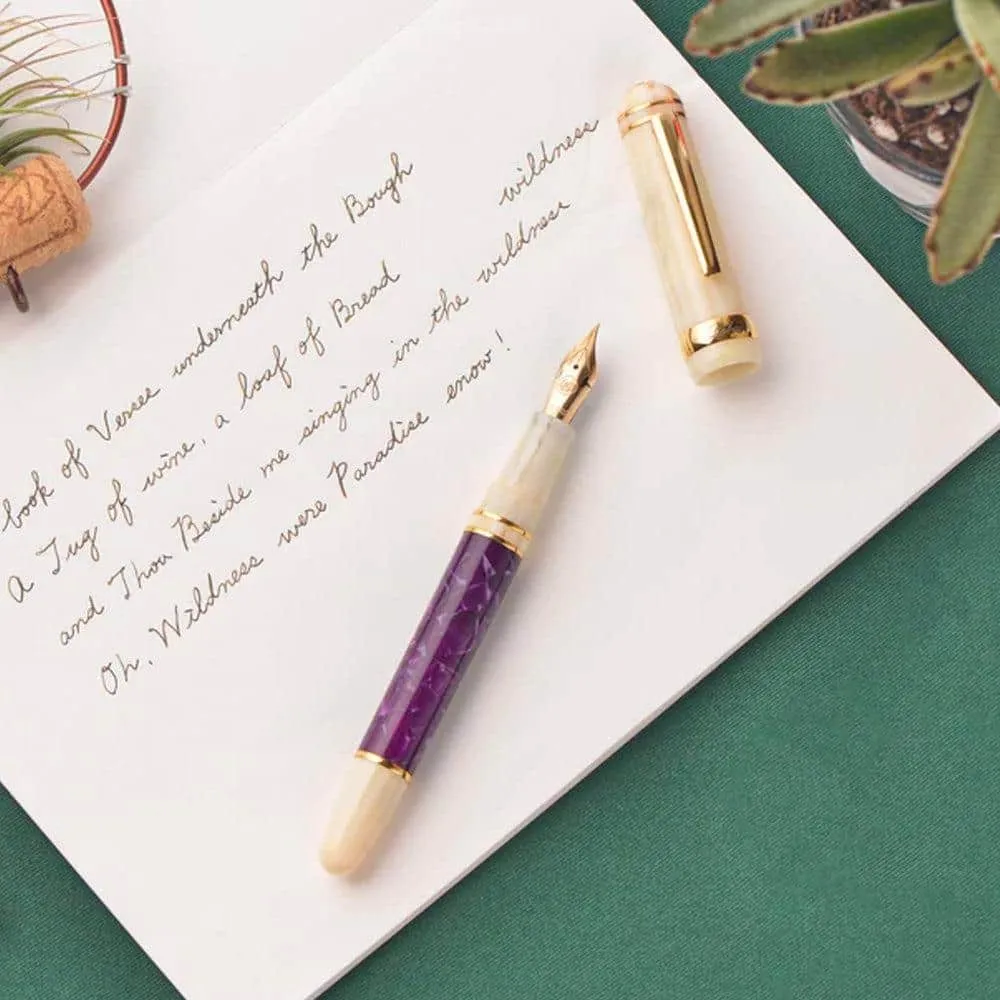 book of Verses underneath the Bough
A Jug of wine, a loaf of Bread
wildness
and Thou Beside me singing in the wildness
Oh, Wildness were Paradise enow!